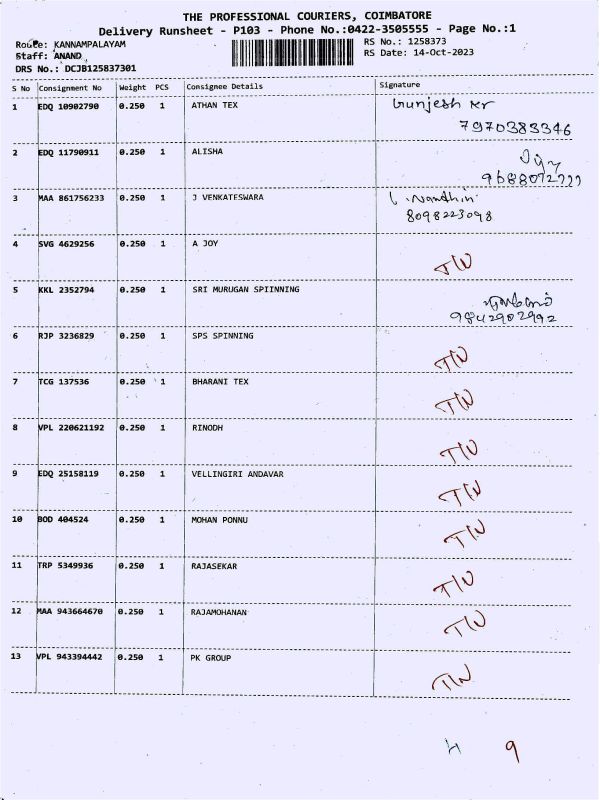 THE PROFESSIONAL COURIERS, COIMBATORE
Delivery Runsheet - P103 - Phone No.:0422-3505555 - Page No.:1
Route: KANNAMPALAYAM
RS No.: 1258373
Staff: ANAND
RS Date: 14-Oct-2023
DRS No.: DCJB125837301
S No Consignment No Weight PCS Consignee Details Signature
1 EDQ 10902790 0.250 1 ATHAN TEX Gunjesh kr
7970383346
2 EDQ 11790911 0.250 1 ALISHA
3 MAA 861756233 0.250 1 J VENKATESWARA
8098223098
4 SVG 4629256 0.250 1 A JOY T/N
5 KKL 2352794 0.250 1 SRI MURUGAN SPIINNING
9842902992
6 RJP 3236829 0.250 1 SPS SPINNING T/N
7 TCG 137536 0.250 1 BHARANI TEX T/N
8 VPL 220621192 0.250 1 RINODH T/N
9 EDQ 25158119 0.250 1 VELLINGIRI ANDAVAR T/N
10 BOD 404524 0.250 1 MOHAN PONNU T/N
11 TRP 5349936 0.250 1 RAJASEKAR T/N
12 MAA 943664670 0.250 1 RAJAMOHANAN T/N
13 VPL 943394442 0.250 1 PK GROUP T/N
4 9